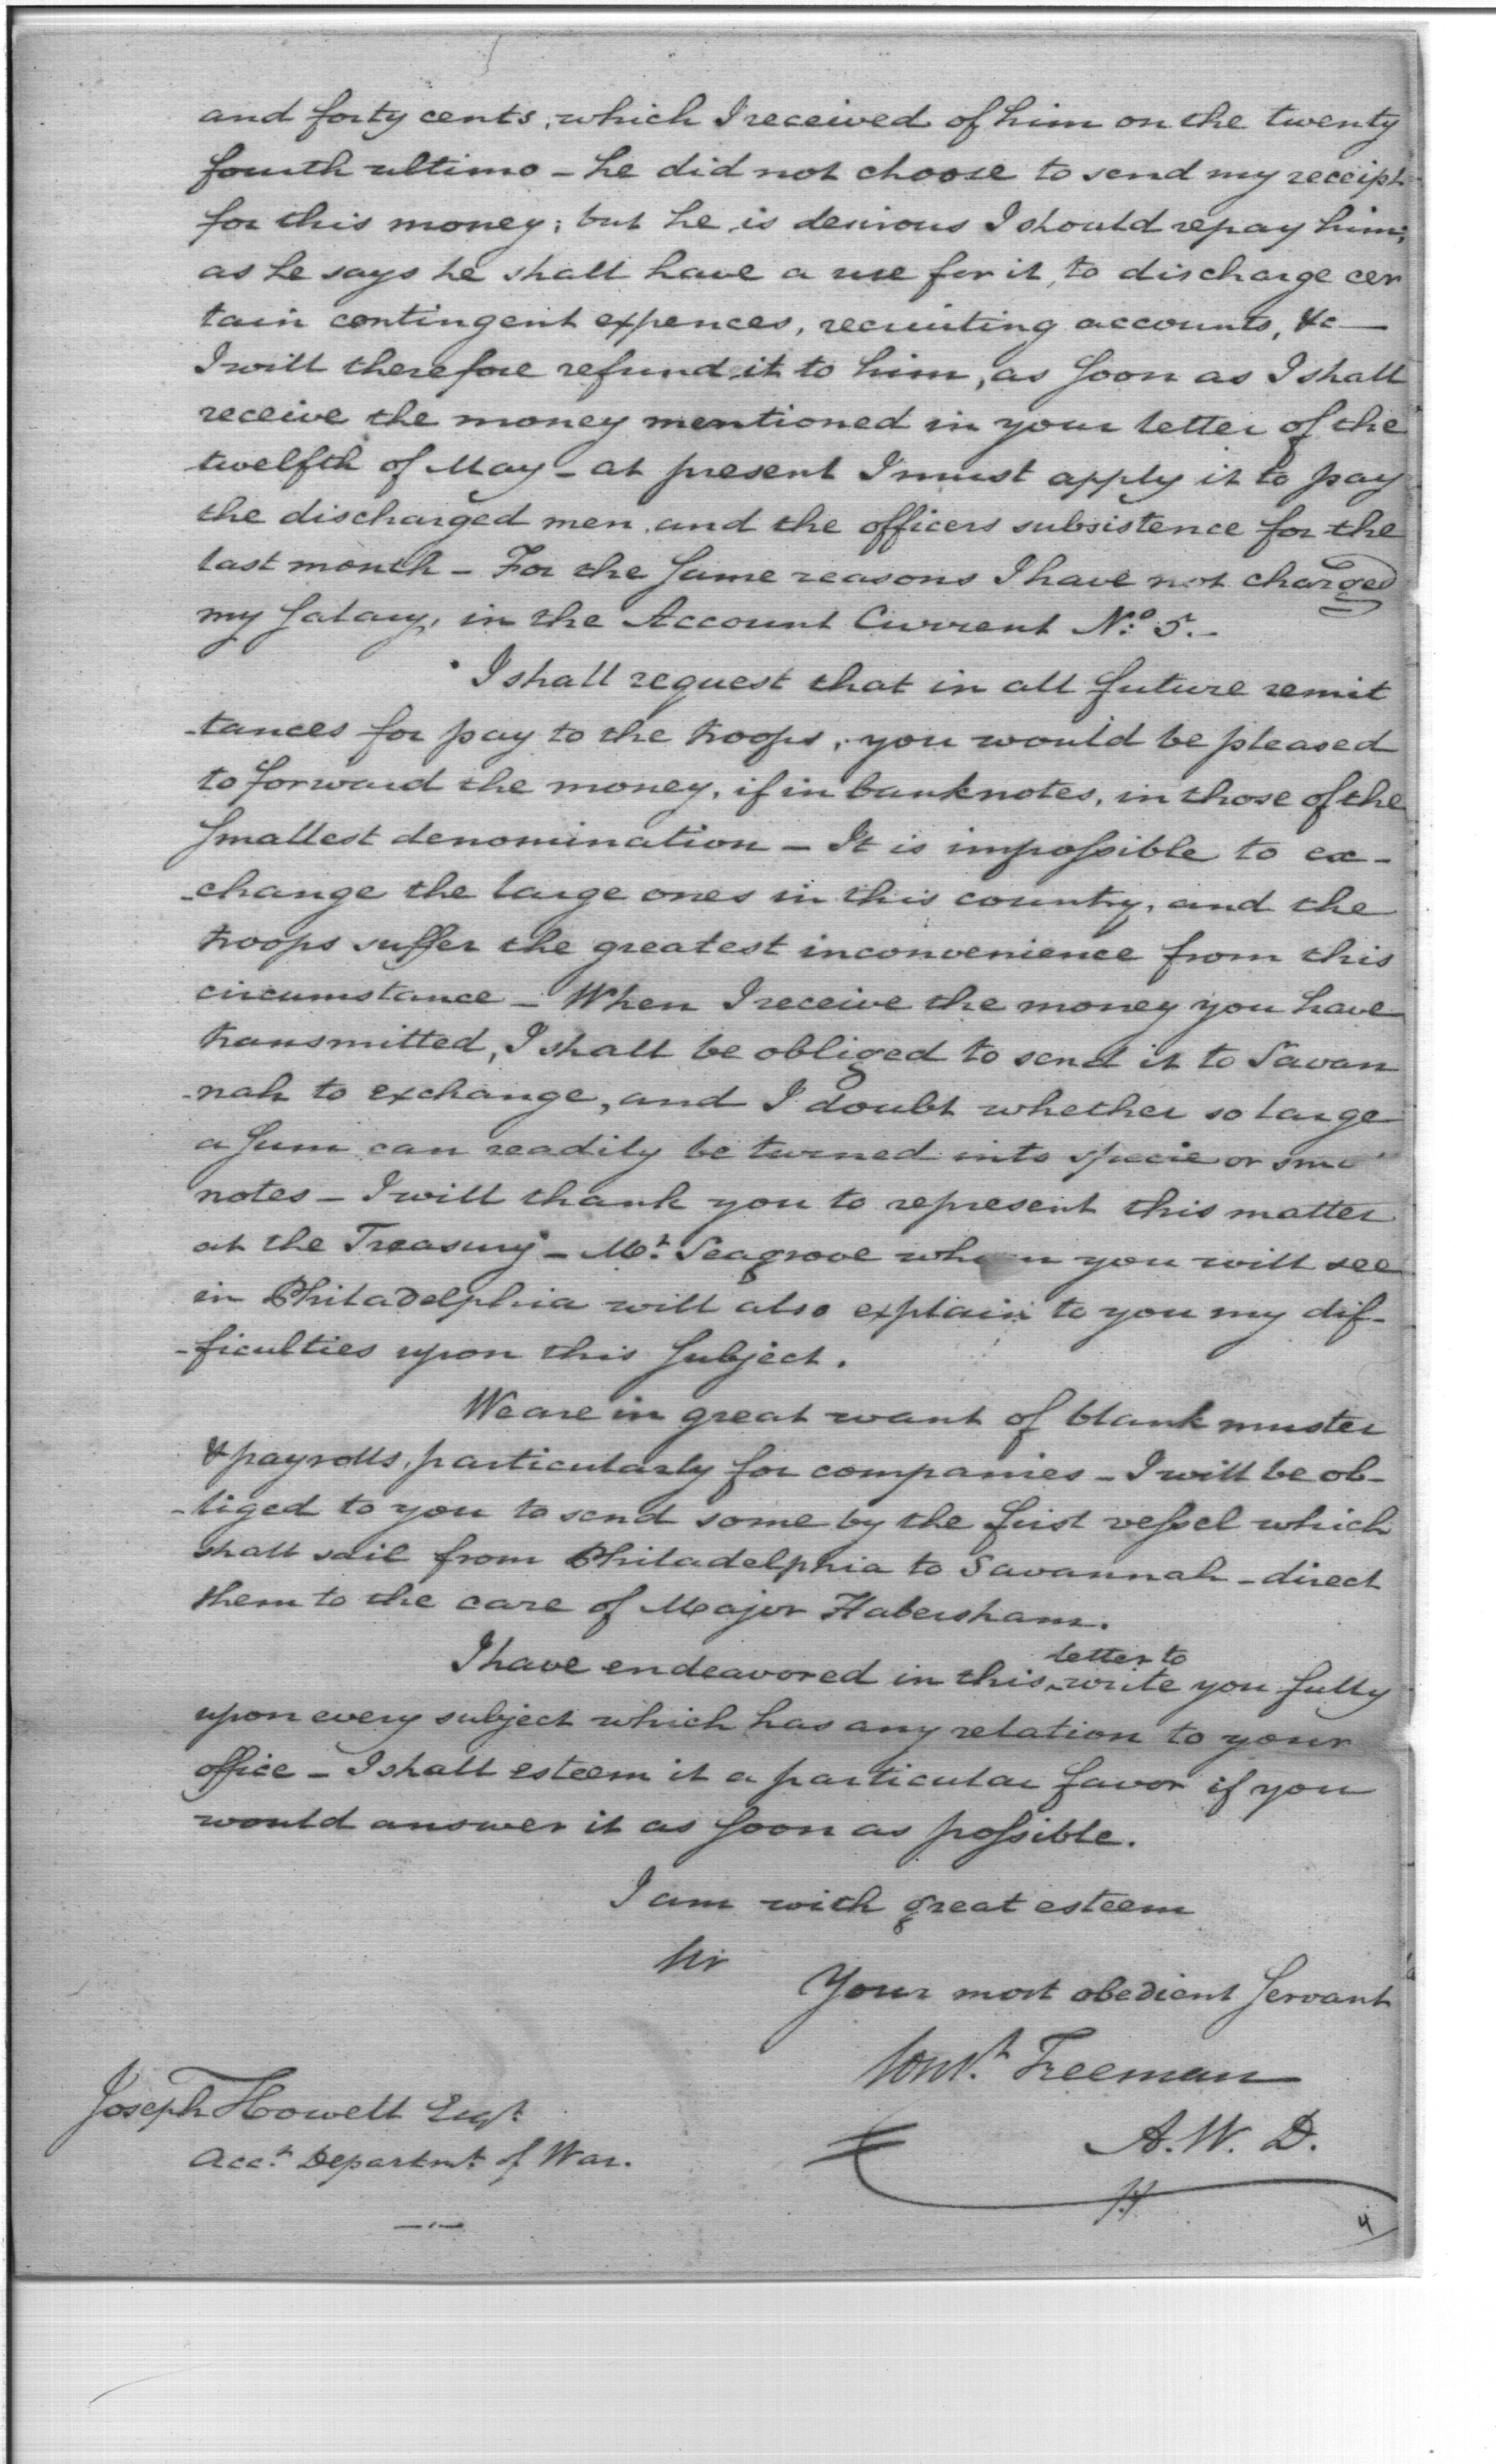 and forty cents, which I received of him on the twenty
fourth ultimo - he did not choose to send my receipt
for this money; but he is desirous I should repay him;
as he says he shall have a use for it, to discharge cer
tain contingent expences, recruiting accounts, &c —
I will therefore refund it to him, as soon as I shall
receive the money mentioned in your letter of the
twelfth of May - at present I must apply it to pay
the discharged men and the officers subsistence for the
last month - For the same reasons I have not charged
my salary, in the Account Current No. 5.-
I shall request that in all future remit
-tances for pay to the troops, you would be pleased
to forward the money, if in bank notes, in those of the
smallest denomination - It is impossible to ex-
-change the large ones in this country, and the
troops suffer the greatest inconvenience from this
circumstance - When I receive the money you have
transmitted, I shall be obliged to send it to Savan
-nah to exchange, and I doubt whether so large
a sum can readily be turned into specie or
notes - I will thank you to represent this matter
at the Treasury - Mr. Seagrove whom you will see
in Philadelphia will also explain to you my dif-
-ficulties upon this subject.
We are in great want of blank muster
& payrolls, particularly for companies - I will be ob-
-liged to you to send some by the first vessel which
shall sail from Philadelphia to Savannah - direct
them to the care of Major Habersham.
letter to
I have endeavored in this write you fully
upon every subject which has any relation to your
office - I shall esteem it a particular favor if you
would answer it as soon as possible.
I am with great esteem
Sir
Your most obedient servant
Const. Freeman
A. W. D.
Joseph Howell Esqr.
Acct. Departmt. of War.
4